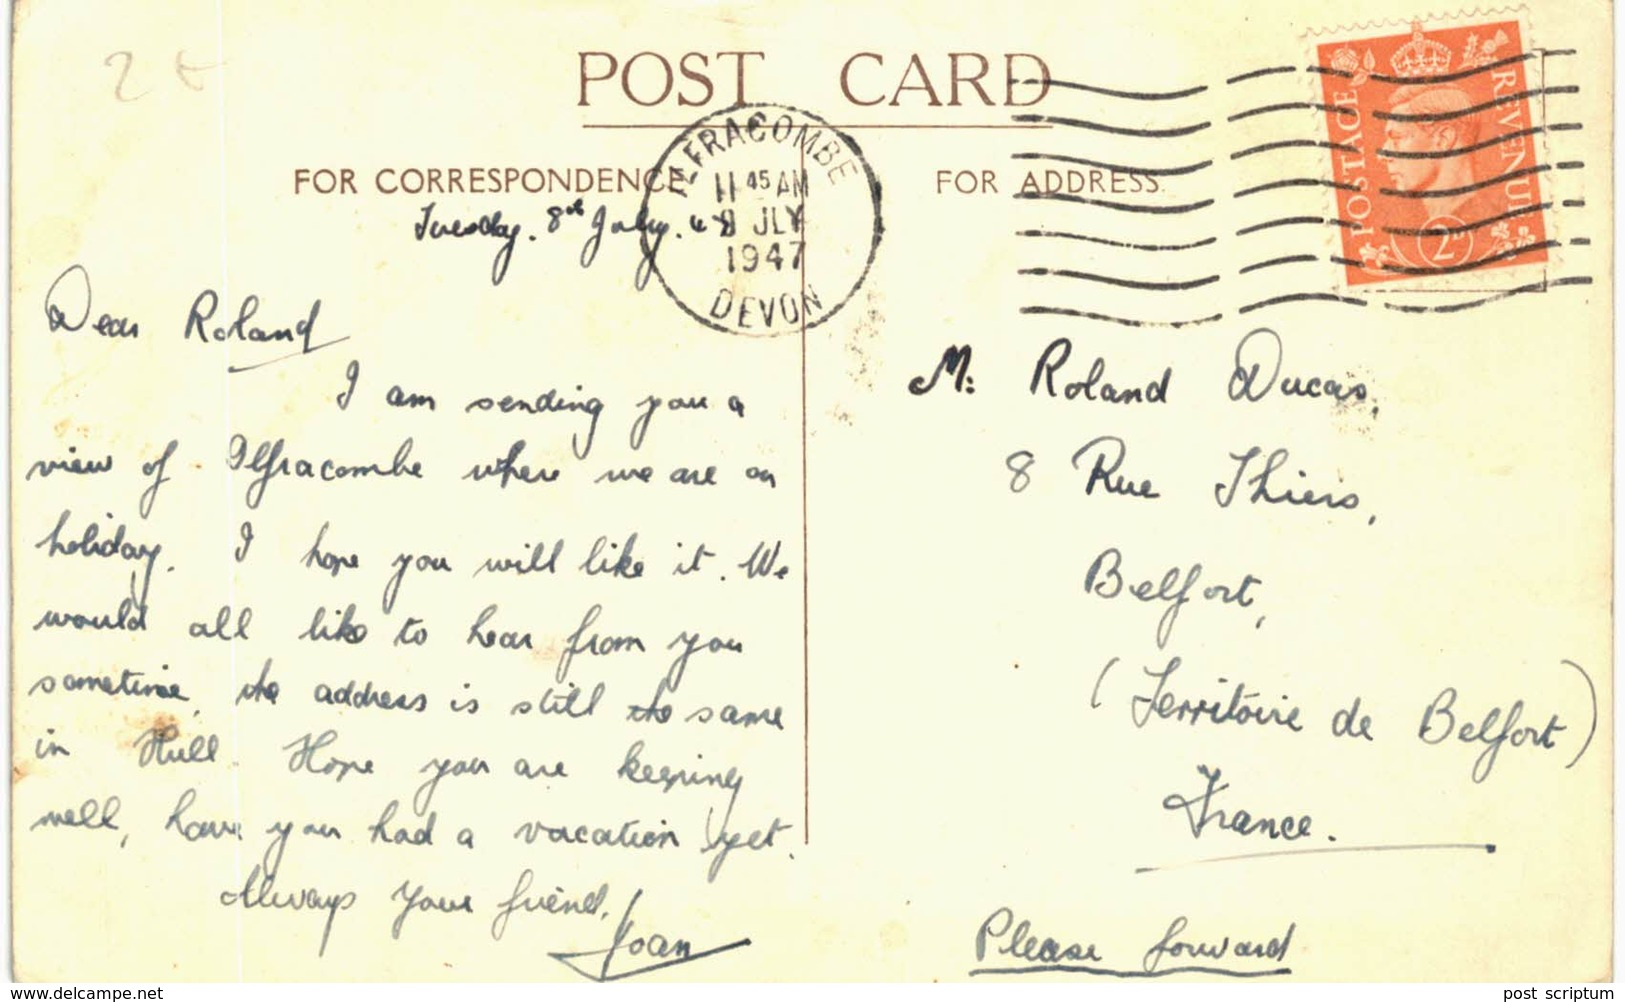 2 €
POST CARD
ILFRACOMBE
11 45 AM
8 JLY
1947
DEVON
POSTAGE REVENUE
2D
FOR CORRESPONDENCE
FOR ADDRESS.
Tuesday. 8th July. 47
Dear Roland
I am sending you a
view of Ilfracombe where we are on
holiday. I hope you will like it. We
would all like to hear from you
sometime, the address is still the same
in Hull. Hope you are keeping
well, have you had a vacation yet.
Always your friend,
Joan
M: Roland Ducas,
8 Rue Thiers,
Belfort,
(Territoire de Belfort)
France.
Please forward
www.delcampe.net
post scriptum